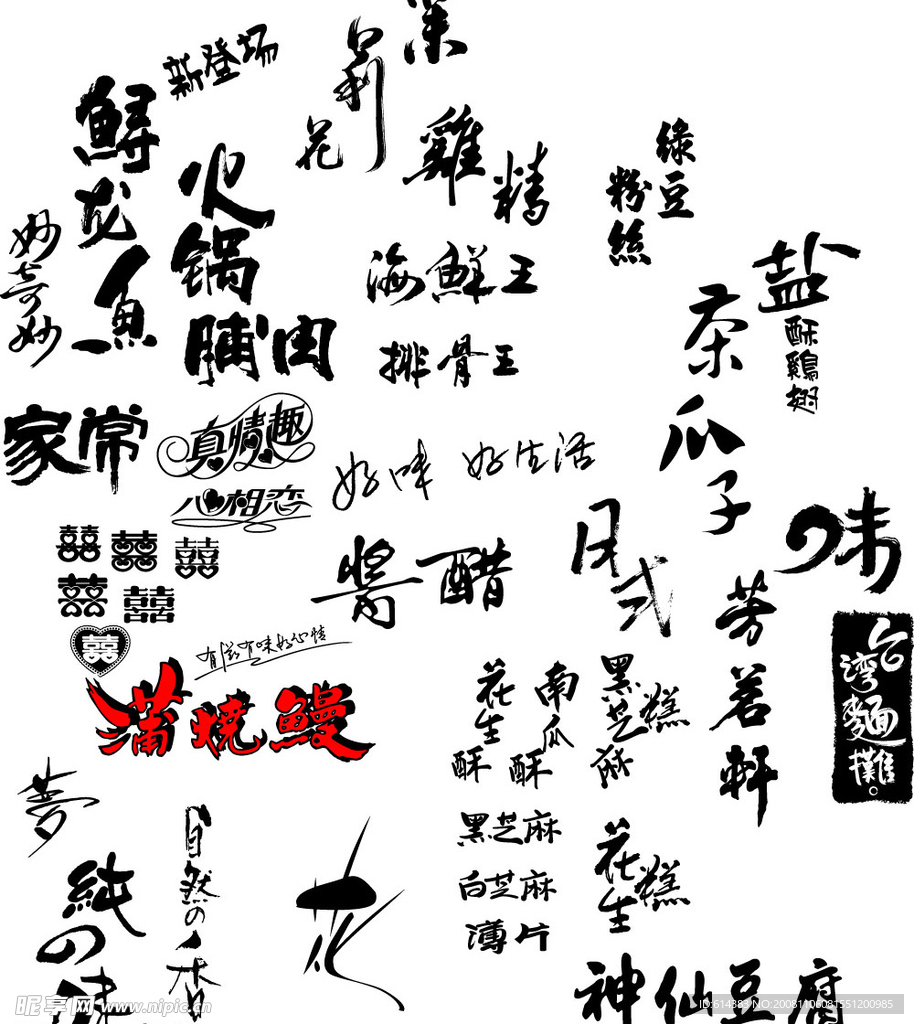 新登场
茉
莉
花
鲟
龙
鱼
火
锅
脯肉
妙
奇
妙
雞
精
綠
豆
粉
絲
海鮮王
排骨王
盐
酥
雞
翅
茶
瓜
子
家常
真情趣
心相恋
好味
好生活
囍囍囍
囍囍
囍
醬醋
月
式
味
芳
茗
軒
台
灣
麵
攤
有滋有味好心情
蒲燒鰻
花
生
酥
南
瓜
酥
黑
芝
麻
糕
夢
純
の
味
自
然
の
花
黑芝麻
白芝麻
薄片
花
生
糕
神仙豆腐
昵享网 www.nipic.cn
ID:614383 NO:20081106081551200985